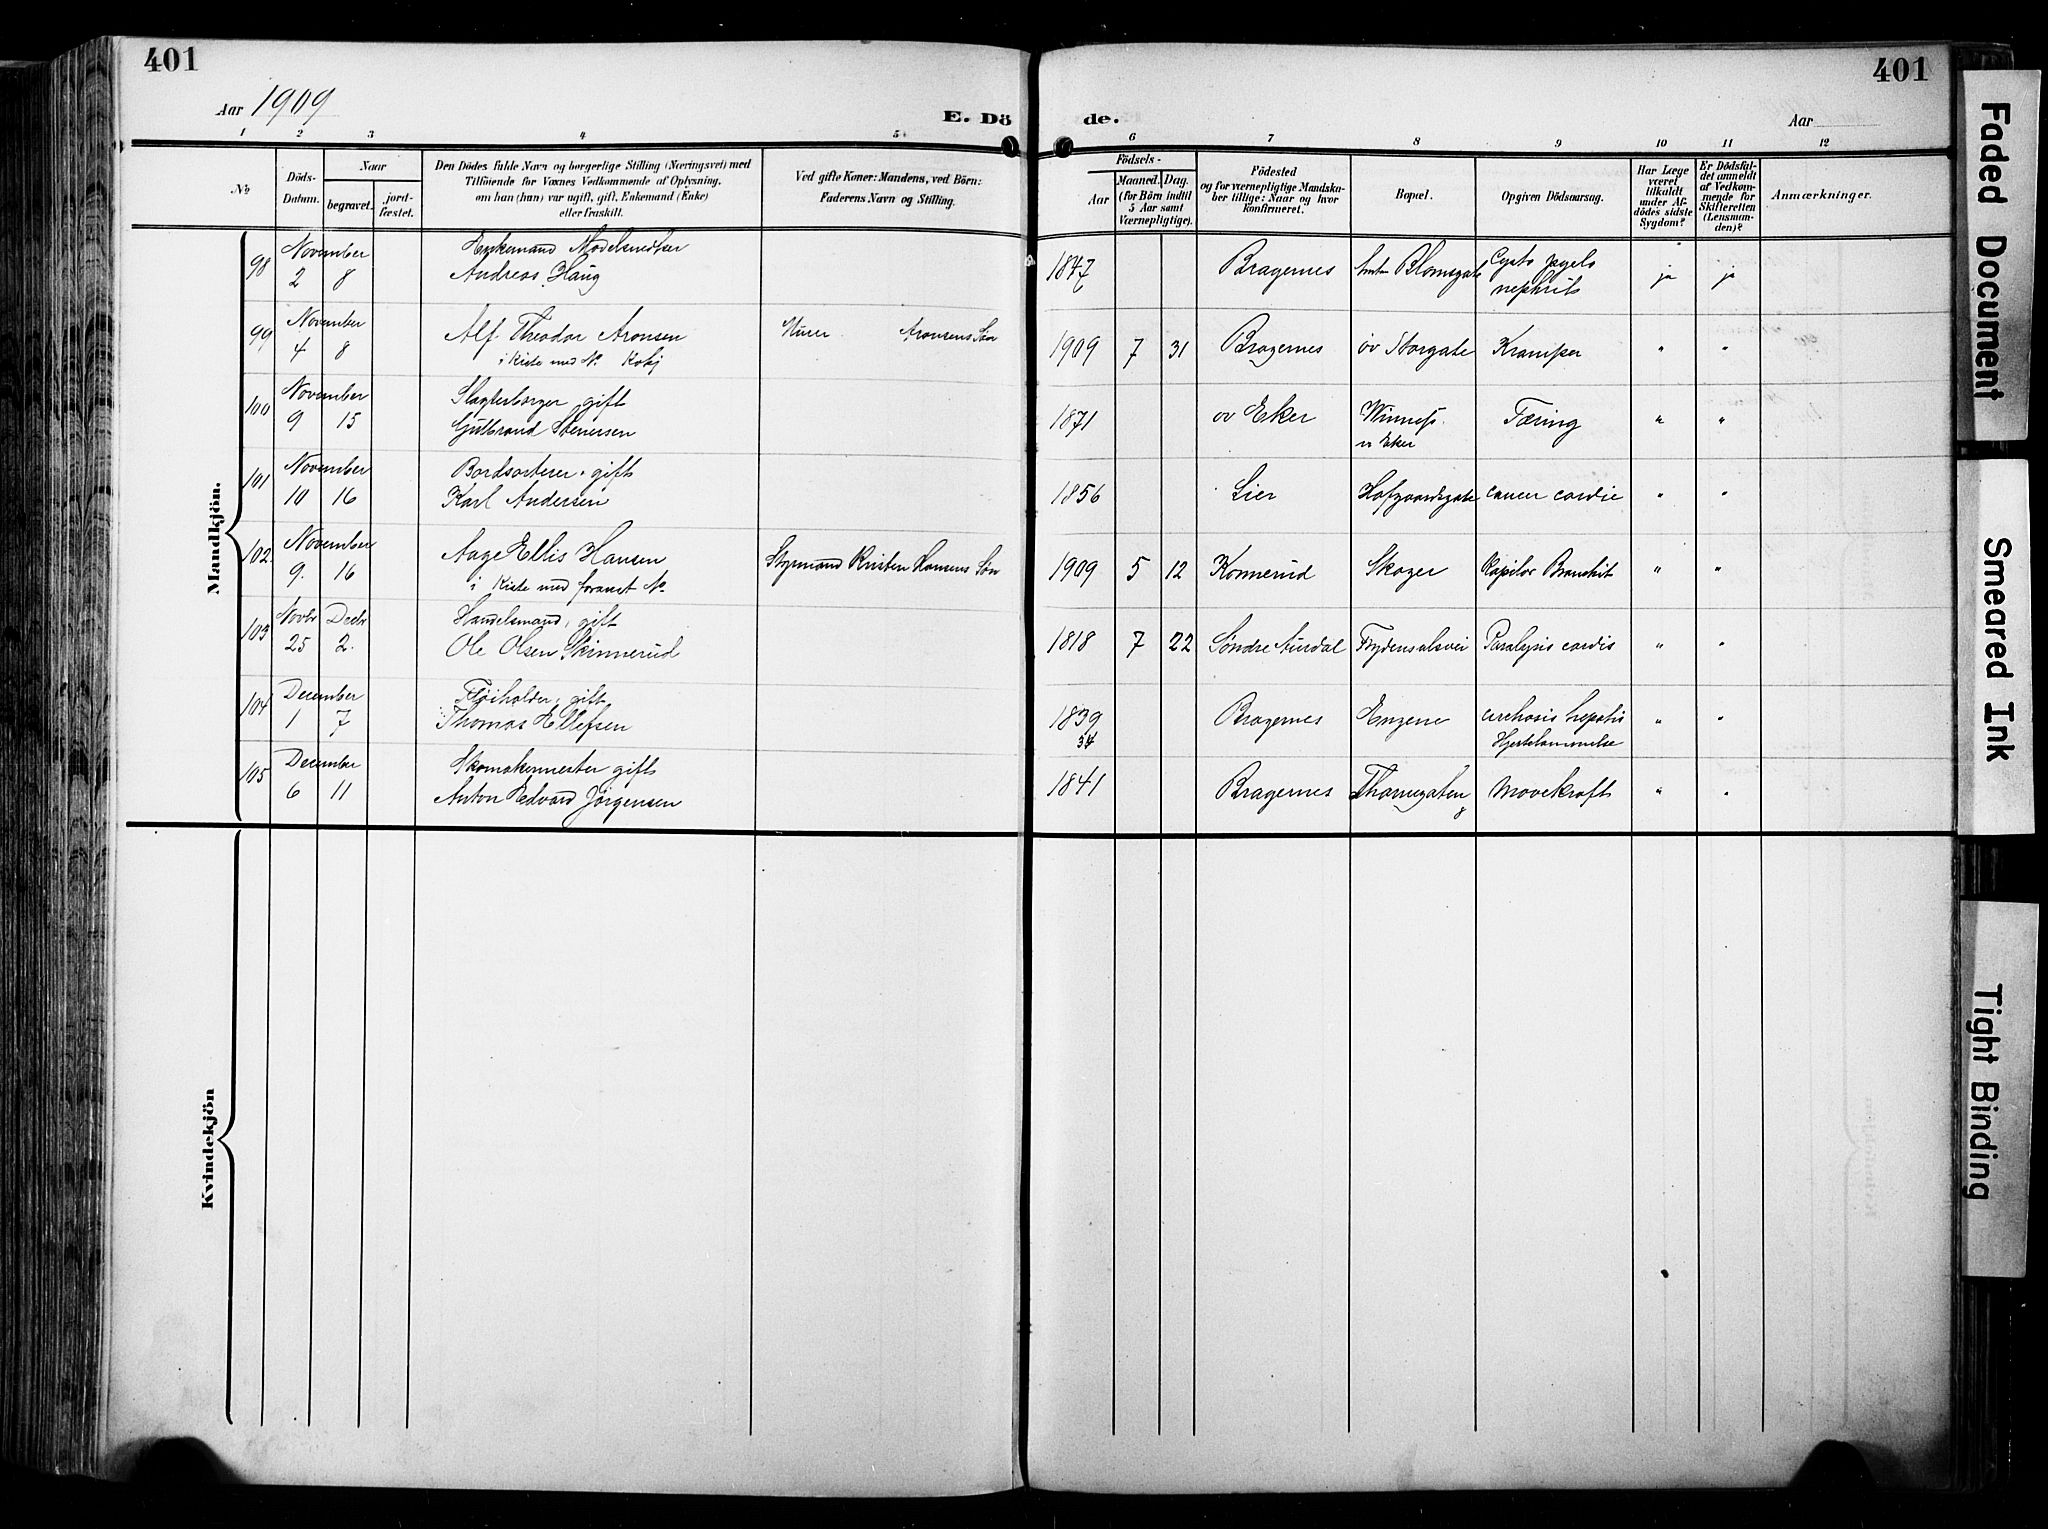 401
401
Aar 1909
E. Dö
de.
Aar
1 2 3 4 5 6 7 8 9 10 11 12
No
Döds-
Datum.
Naar
begravet.
jord-
fæstet.
Den Dödes fulde Navn og borgerlige Stilling (Næringsvei) med
Tilföiende for Voxnes Vedkommende af Oplysning,
om han (hun) var ugift, gift, Enkemand (Enke)
eller fraskilt.
Ved gifte Koner: Mandens, ved Börn:
Faderens Navn og Stilling.
Födsels-
Aar
Maaned.
Dag.
(for Börn indtil
5 Aar samt
Værnepligtige).
Födested
og for værnepligtige Mandska-
ber tillige: Naar og hvor
konfirmeret.
Bopæl.
Opgiven Dödsaarsag.
Har Læge
været
tilkaldt
under Af-
dödes sidste
Sygdom?
Er Dödsfal-
det anmeldt
af Vedkom-
mende for
Skifteretten
(Lensman-
den)?
Anmærkninger.
Mandkjön.
98 November Enkemand
2 8 Andreas Haug 1847 Bragernes Blomsgate Cysto pyelo
6 nephrit ja ja
99 November
4 8 Alf Theodor Aronsen Murer Aronsens Søn 1909 7 31 Bragernes øv Storgate Kramper " "
i Kiste med No.
100 November Slagterborger, gift
9 15 Gulbrand Stenersen 1871 øv Eker
n Eker Tæring " "
101 November Bordsorterer, gift
10 16 Karl Andersen 1856 Lier Hofgaardsgate cancer cardiæ " "
102. November
9. 16 Aage Ellis Hansen Styrmand Kristen Hansens Søn 1909 5 12 Konnerud Skoger Kapilær Bronkit " "
i Kiste med foranst No.
103 Novbr Decbr Handelsmand, gift
25 2. Ole Olsen Skinnerud 1818 7 22 Søndre Aurdal Frydensalsvei Paralysis cordis " "
104 December Fløiholder, gift
1 7 Thomas Ellefsen 1839 Bragernes Engene cirrhosis hepatis " "
34 Hjertelammelse
105 December Skomakermester gift
6 11 Anton Edvard Jörgensen 1841 Bragernes Thornegaten Mavekræft " "
8
Kvindekjön
Faded Document
Smeared Ink
Tight Binding